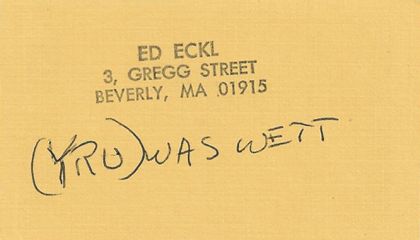 ED ECKL
3, GREGG STREET
BEVERLY, MA 01915
(YRU) WAS WETT